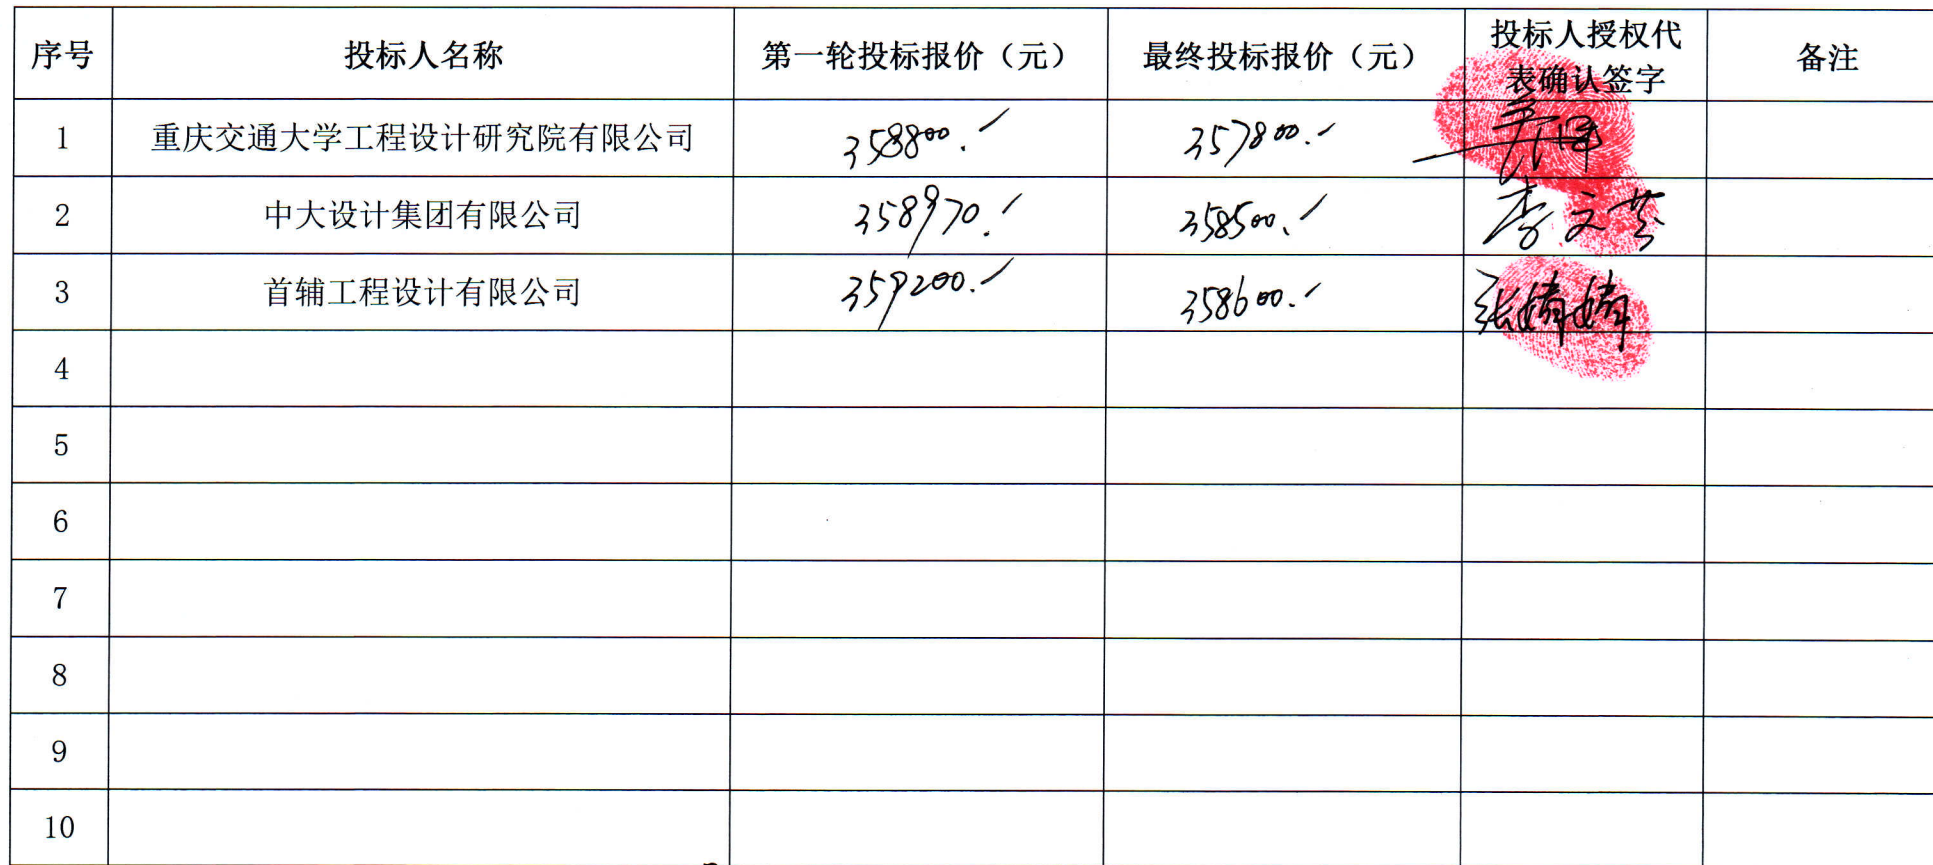 序号 投标人名称 第一轮投标报价（元） 最终投标报价（元） 投标人授权代 备注
表确认签字
1 重庆交通大学工程设计研究院有限公司 358800. 357800.
2 中大设计集团有限公司 358970. 358500. 李文芸
3 首辅工程设计有限公司 359200. 358600. 张婧婧
4
5
6
7
8
9
10